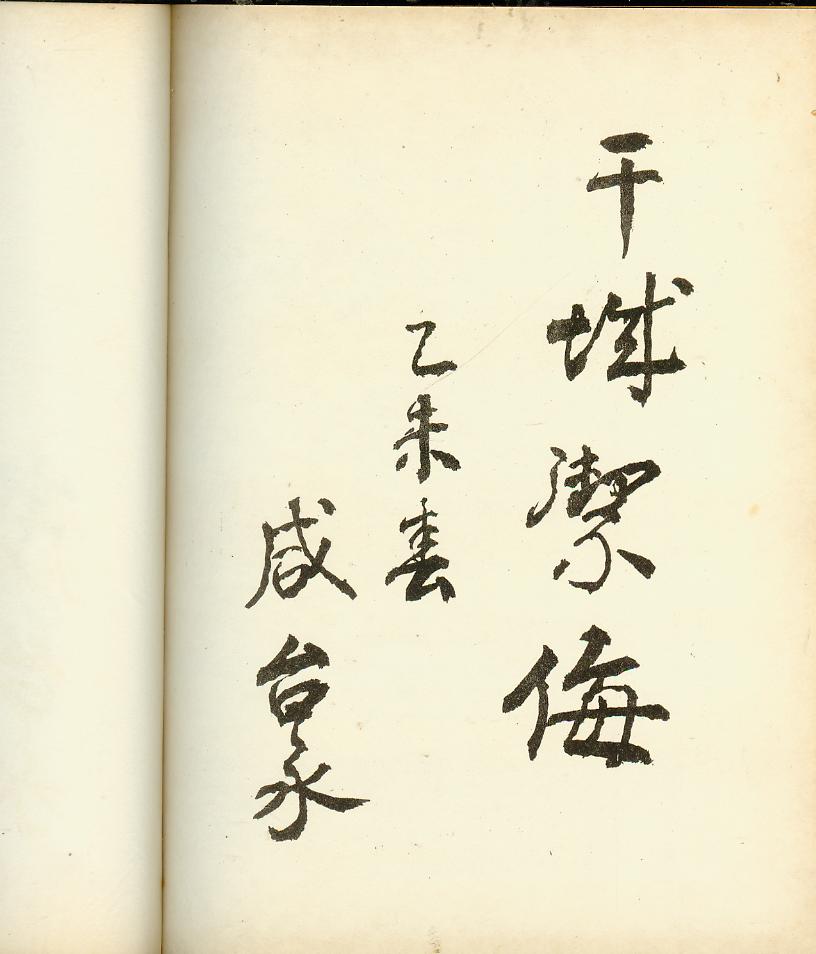 干城禦侮
乙未春
咸台永